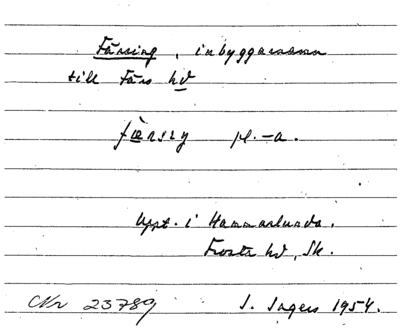 Färsing, inbyggarnamn
till Färs hd
færsiŋ pl. -a.
Uppt. i Hammarlunda,
Frosta hd, Sk.
Nr 23789 I. Ingers 1954.